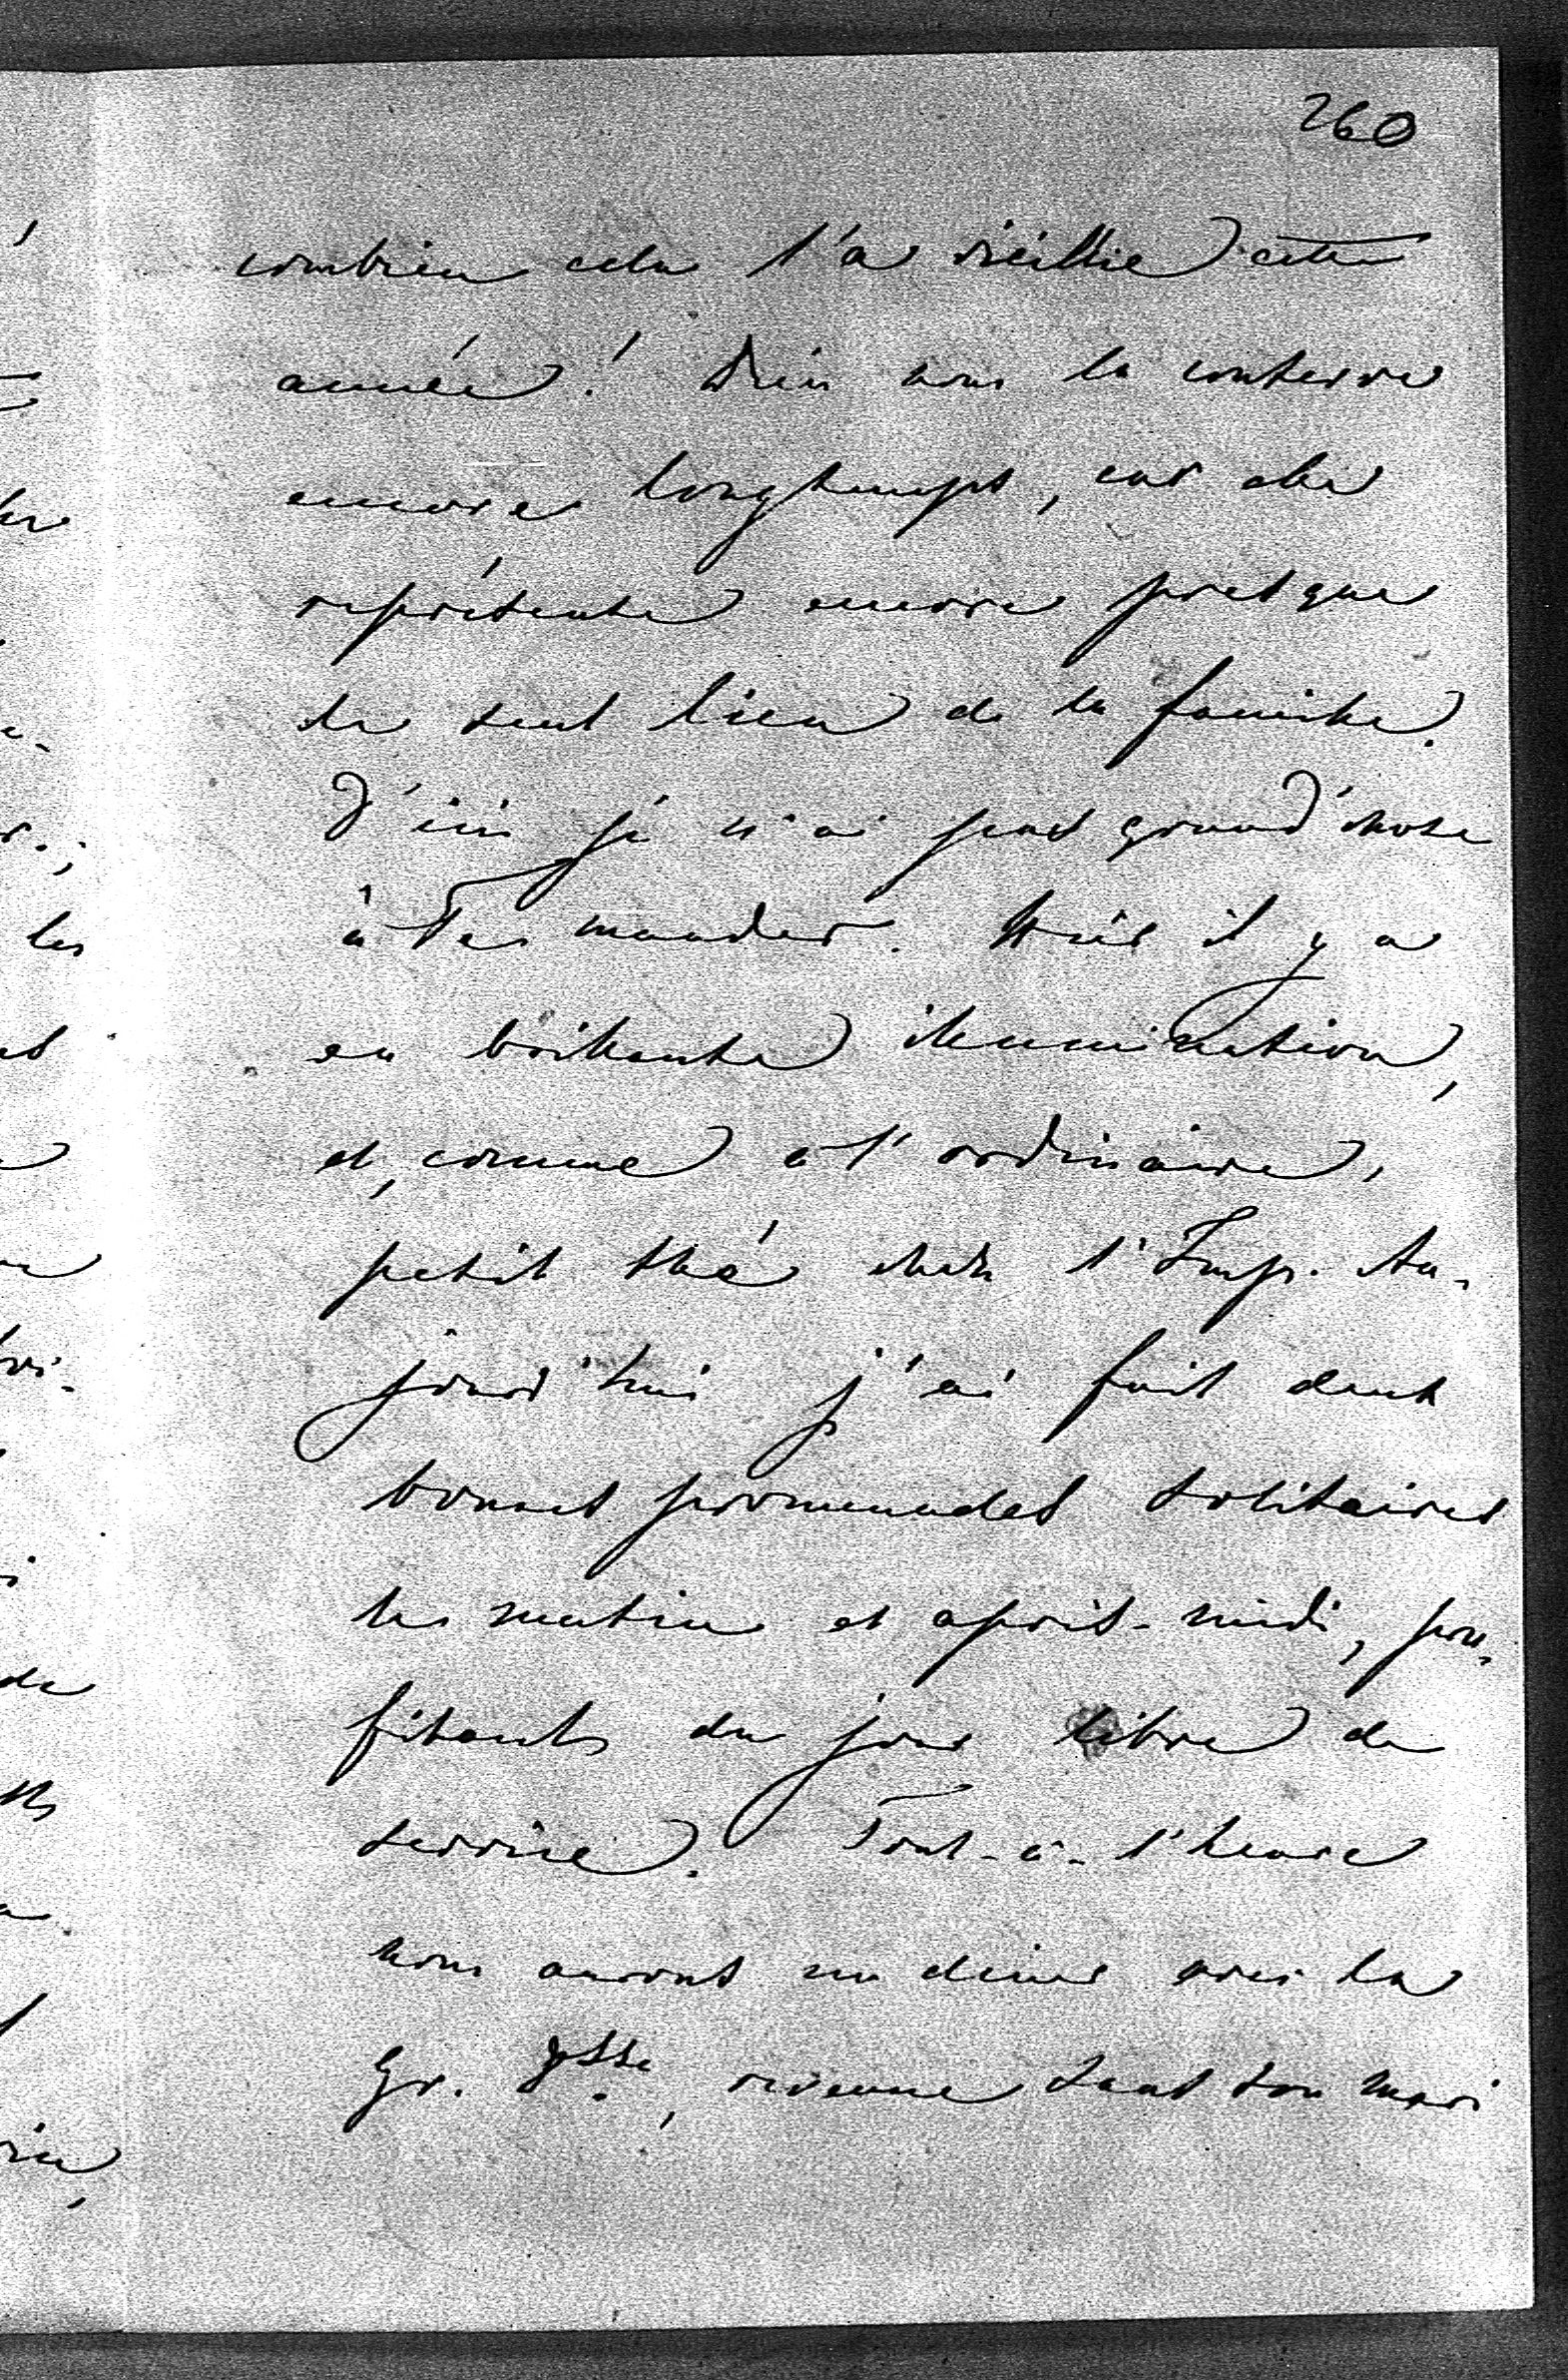 260
combien cela l'a vieillie cette
année! Dieu nous la conserve
encore longtemps, car elle
représente encore presque
le seul lien de la famille.
D'ici je n'ai pas grand'chose
à Te mander. Hier il y a
eu brillante illumination,
et, comme à l'ordinaire,
petit thé chez l'Imp. Au-
jourd'hui j'ai fait deux
bonnes promenades solitaires
le matin et après-midi, pro-
fitant du jour libre de
service. Tout-à-l'heure
nous aurons un diner avec la
Gr. Dsse, revenue sans son mari